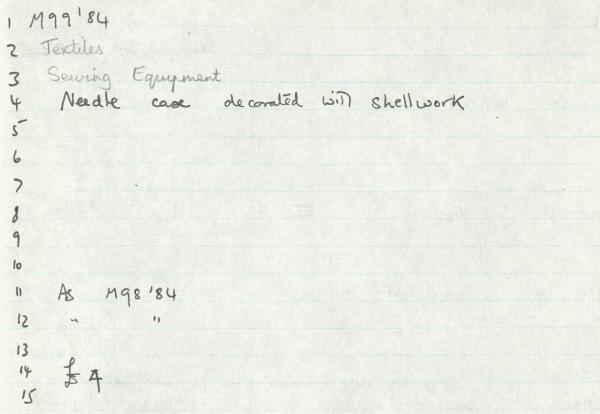 1 M99'84
2 Textiles
3 Sewing Equipment
4 Needle case decorated with shellwork
5
6
7
8
9
10
11 As M98'84
12 " "
13
14 £4
15